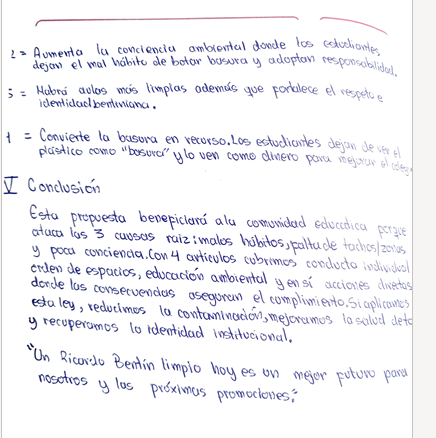 2 = Aumenta la conciencia ambiental donde los estudiantes
dejan el mal hábito de botar basura y adoptan responsabilidad.
3 = Habrá aulas más limpias además que fortalece el respeto e
identidad bentiniana.
1 = Convierte la basura en recurso. Los estudiantes dejan de ver el
plástico como "basura" y lo ven como dinero para mejorar el
V Conclusión
Esta propuesta beneficiará a la comunidad educativa porque
ataca las 3 causas raiz: malos hábitos, falta de tachos/zonas
y poca conciencia. Con 4 artículos cubrimos conducta individual
orden de espacios, educación ambiental y en sí acciones directas
donde las consecuencias aseguran el cumplimiento. Si aplicamos
esta ley, reducimos la contaminación, mejoramos la salud de
y recuperamos la identidad institucional.
"Un Ricardo Bentín limpio hoy es un mejor futuro para
nosotros y las próximas promociones."